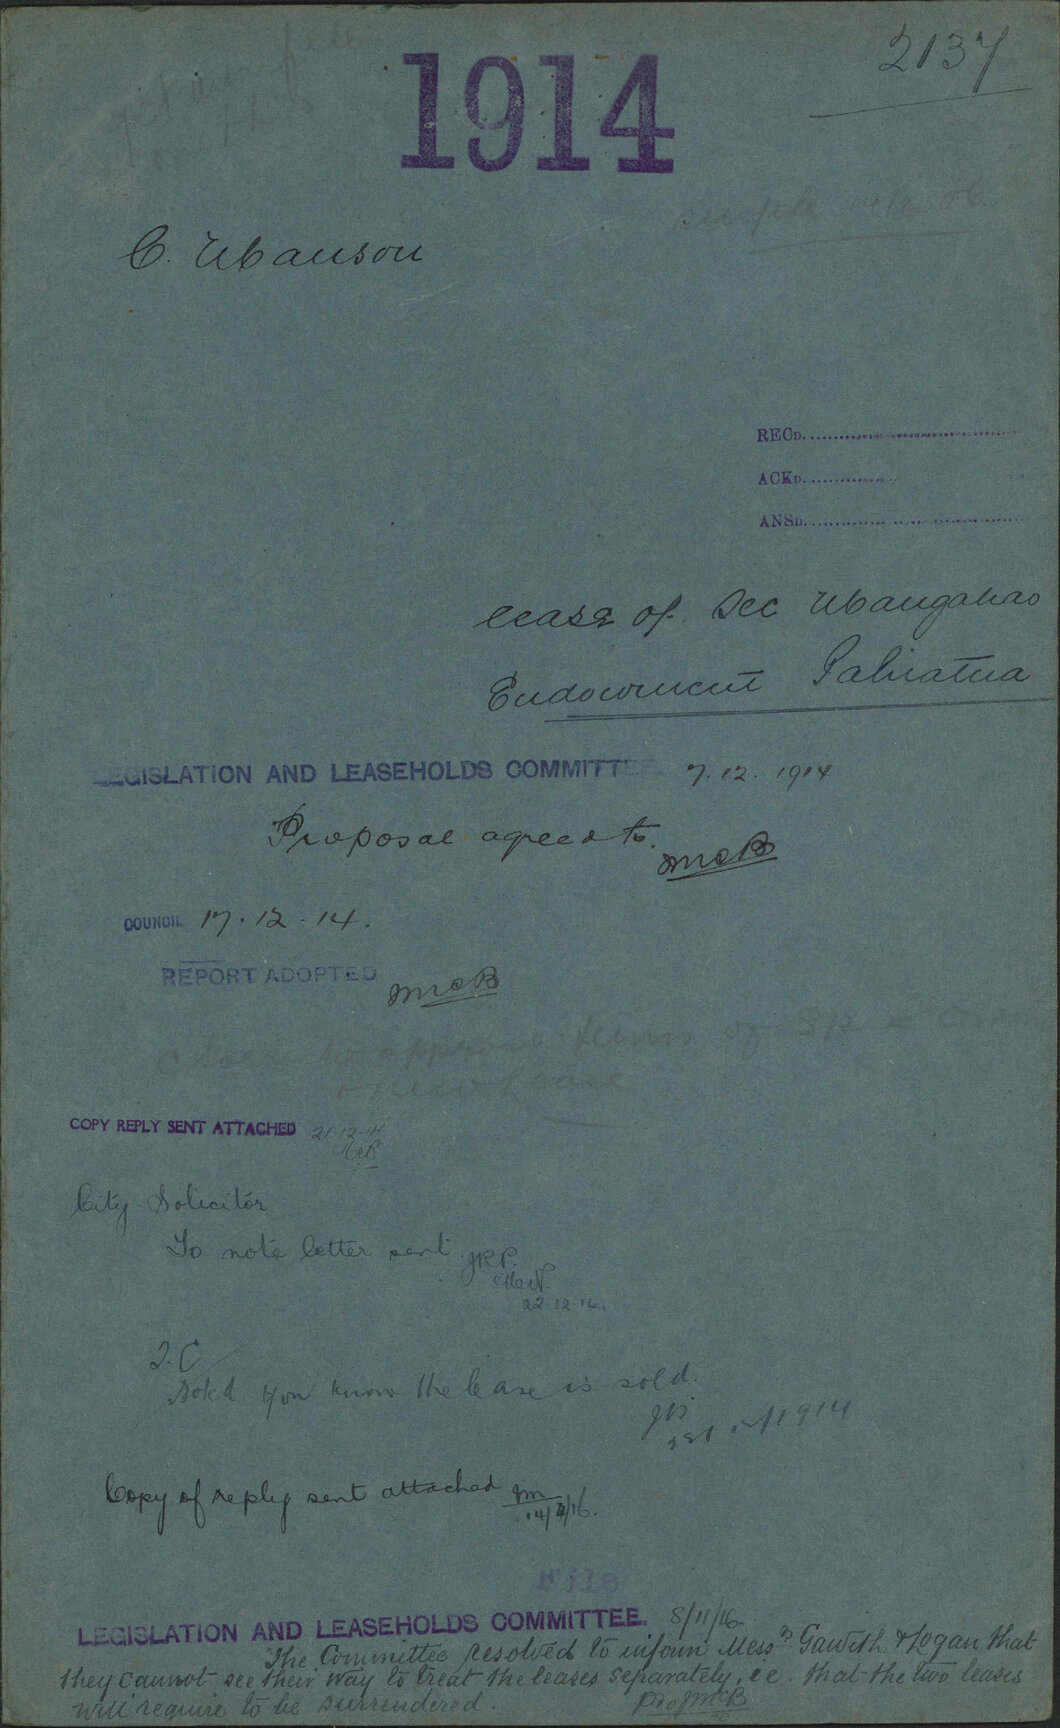 2137
1914
see file
C. Manson
RECD.
ACKD.
ANSD.
Lease of Sec Mangahao
Endowment Pahiatua
LEGISLATION AND LEASEHOLDS COMMITTEE 7.12.1914
Proposal agreed to.
COUNCIL 17.12.14.
REPORT ADOPTED
to approve terms of
new lease
COPY REPLY SENT ATTACHED 21-12-14
City Solicitor
To note letter sent JRP.
22-12-14.
T.C
Noted you know the lease is sold.
1914
Copy of reply sent attached
File
LEGISLATION AND LEASEHOLDS COMMITTEE. 8/11/16.
The Committee resolved to inform Messrs Gawith & Logan that
they cannot see their way to treat the leases separately, i.e. that the two leases
will require to be surrendered.